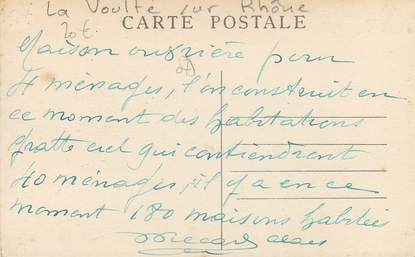 La Voulte sur Rhône
CARTE POSTALE
20f
Maison ouvrière pour
4 ménages, l'on construit en
ce moment des habitations
gratte ciel qui contiendront
40 ménages, il y a en ce
moment 180 maisons habitées